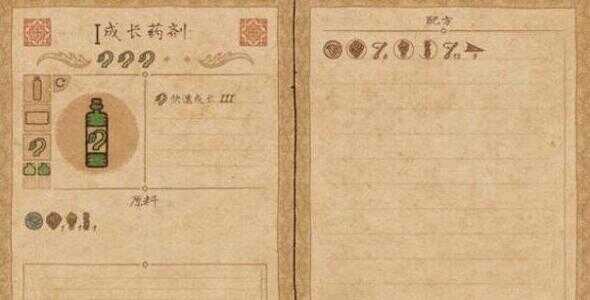 成长药剂
快速成长 III
原料
配方